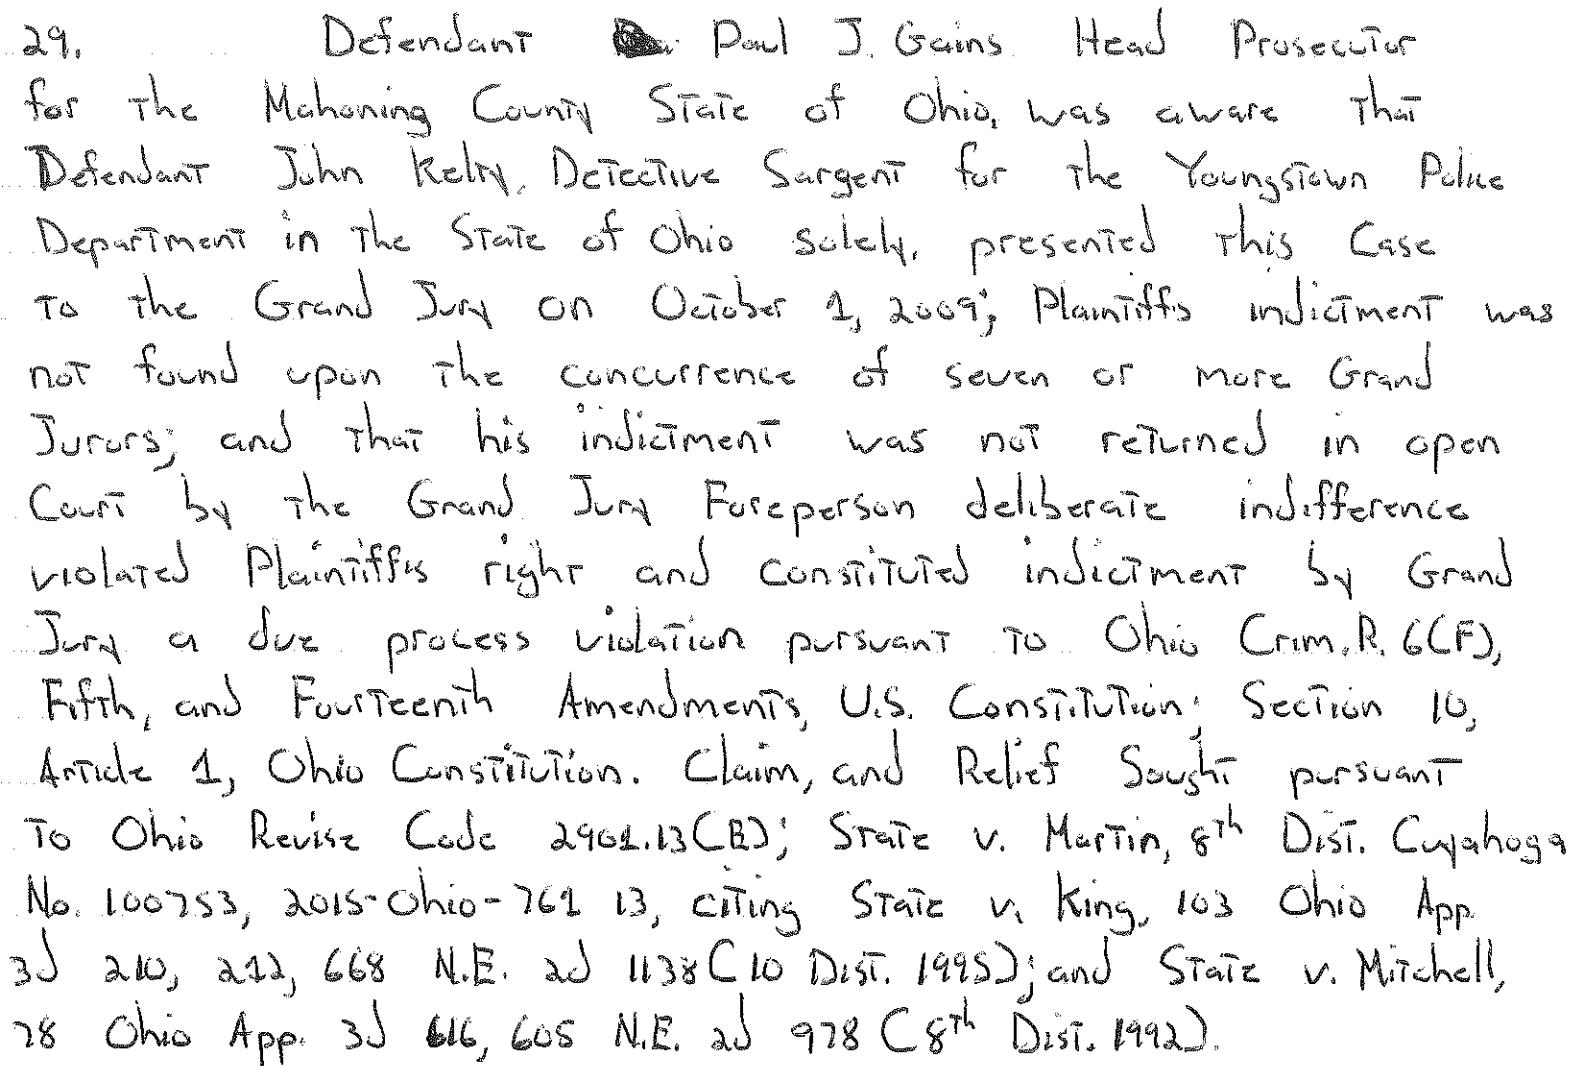 29. Defendant Paul J. Gains Head Prosecutor
for the Mahoning County State of Ohio, was aware that
Defendant John Kelty, Detective Sargent for the Youngstown Police
Department in the State of Ohio solely, presented this Case
to the Grand Jury on October 1, 2009; Plaintiffs indictment was
not found upon the concurrence of seven or more Grand
Jurors; and that his indictment was not returned in open
Court by the Grand Jury Foreperson deliberate indifference
violated Plaintiffs right and constituted indictment by Grand
Jury a due process violation pursuant to Ohio Crim.R. 6(F),
Fifth, and Fourteenth Amendments, U.S. Constitution; Section 10,
Article 1, Ohio Constitution. Claim, and Relief Sought pursuant
to Ohio Revise Code 2901.13(B); State v. Martin, 8th Dist. Cuyahoga
No. 100753, 2015-Ohio-761 13, citing State v. King, 103 Ohio App.
3d 210, 212, 668 N.E. 2d 1138 (10 Dist. 1995); and State v. Mitchell,
78 Ohio App. 3d 616, 605 N.E. 2d 978 (8th Dist. 1992).